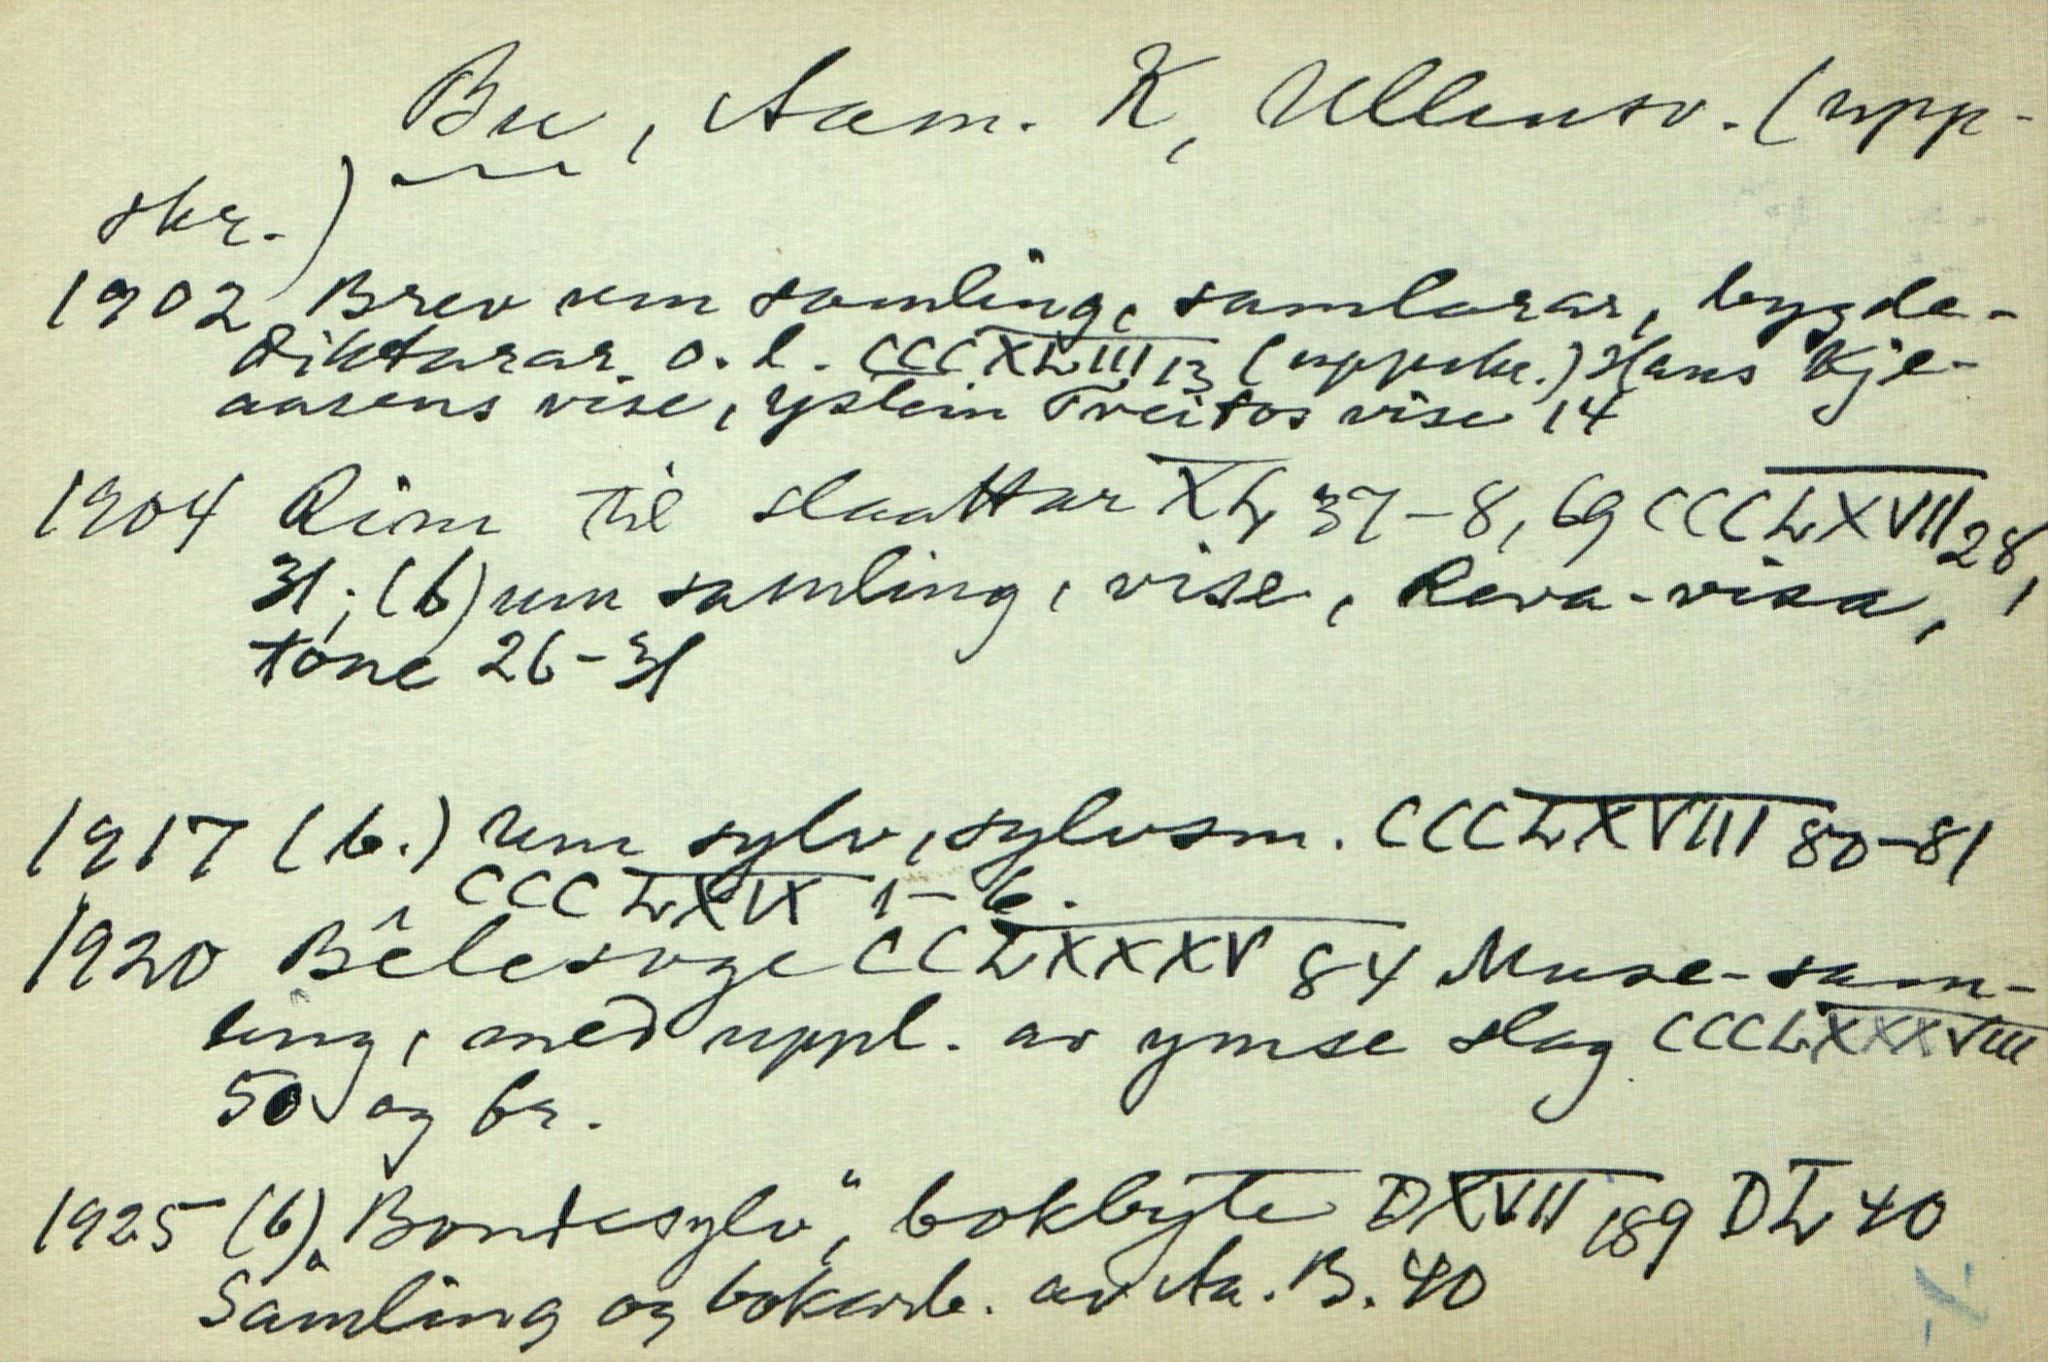 Bu, Aam. K, Ullensv. (upp-
skr.)
1902 Brev um samling, samlarar, bygde-
diktarar o.l. CCCXLIII 13 (uppskr.) Hans Kje-
aasens vise, Øystein Tveitos vise 14
1904 Rim til slaattar XL 37-8, 69 CCCLXVII 28,
31; (b) um samling, vise, Reva-visa,
tone 26-31
1917 (b.) um sylv, sylvsm. CCCLXVIII 80-81
CCCLXIX 1-6.
1920 Bêlesoge CCLXXXV 84 Muse-sam-
ling, med uppl. av ymse slag CCCLXXXVIII
50 og br.
1925 (b) „Bondesylv", bokbyte DXVII 189 DL 40
Samling og bokarb. av Aa. B. 40